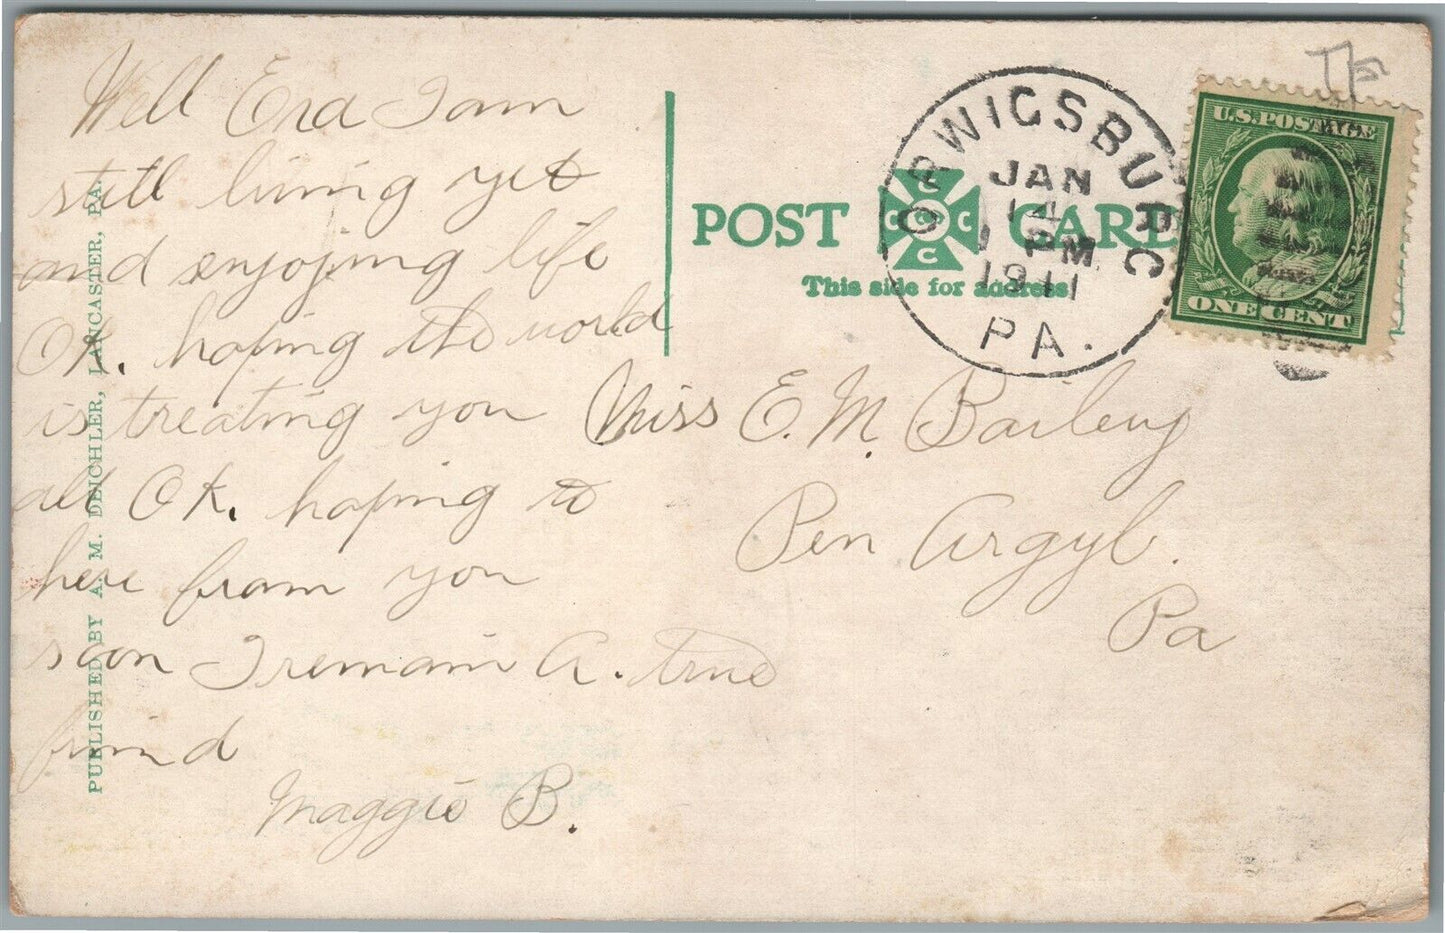 Well Era I am
still living yet
and enjoying life
OK. hoping the world
is treating you
all OK. hoping to
here from you
soon I remain a. true
frind
Maggie B.
PUBLISHED BY A. M. DEICHLER, LANCASTER, PA.
POST CARD
C C C C C
This side for address
ORWIGSBURG
JAN
14
1 PM
1911
PA.
U.S. POSTAGE
ONE CENT
Miss E. M. Bailey
Pen Argyl.
Pa